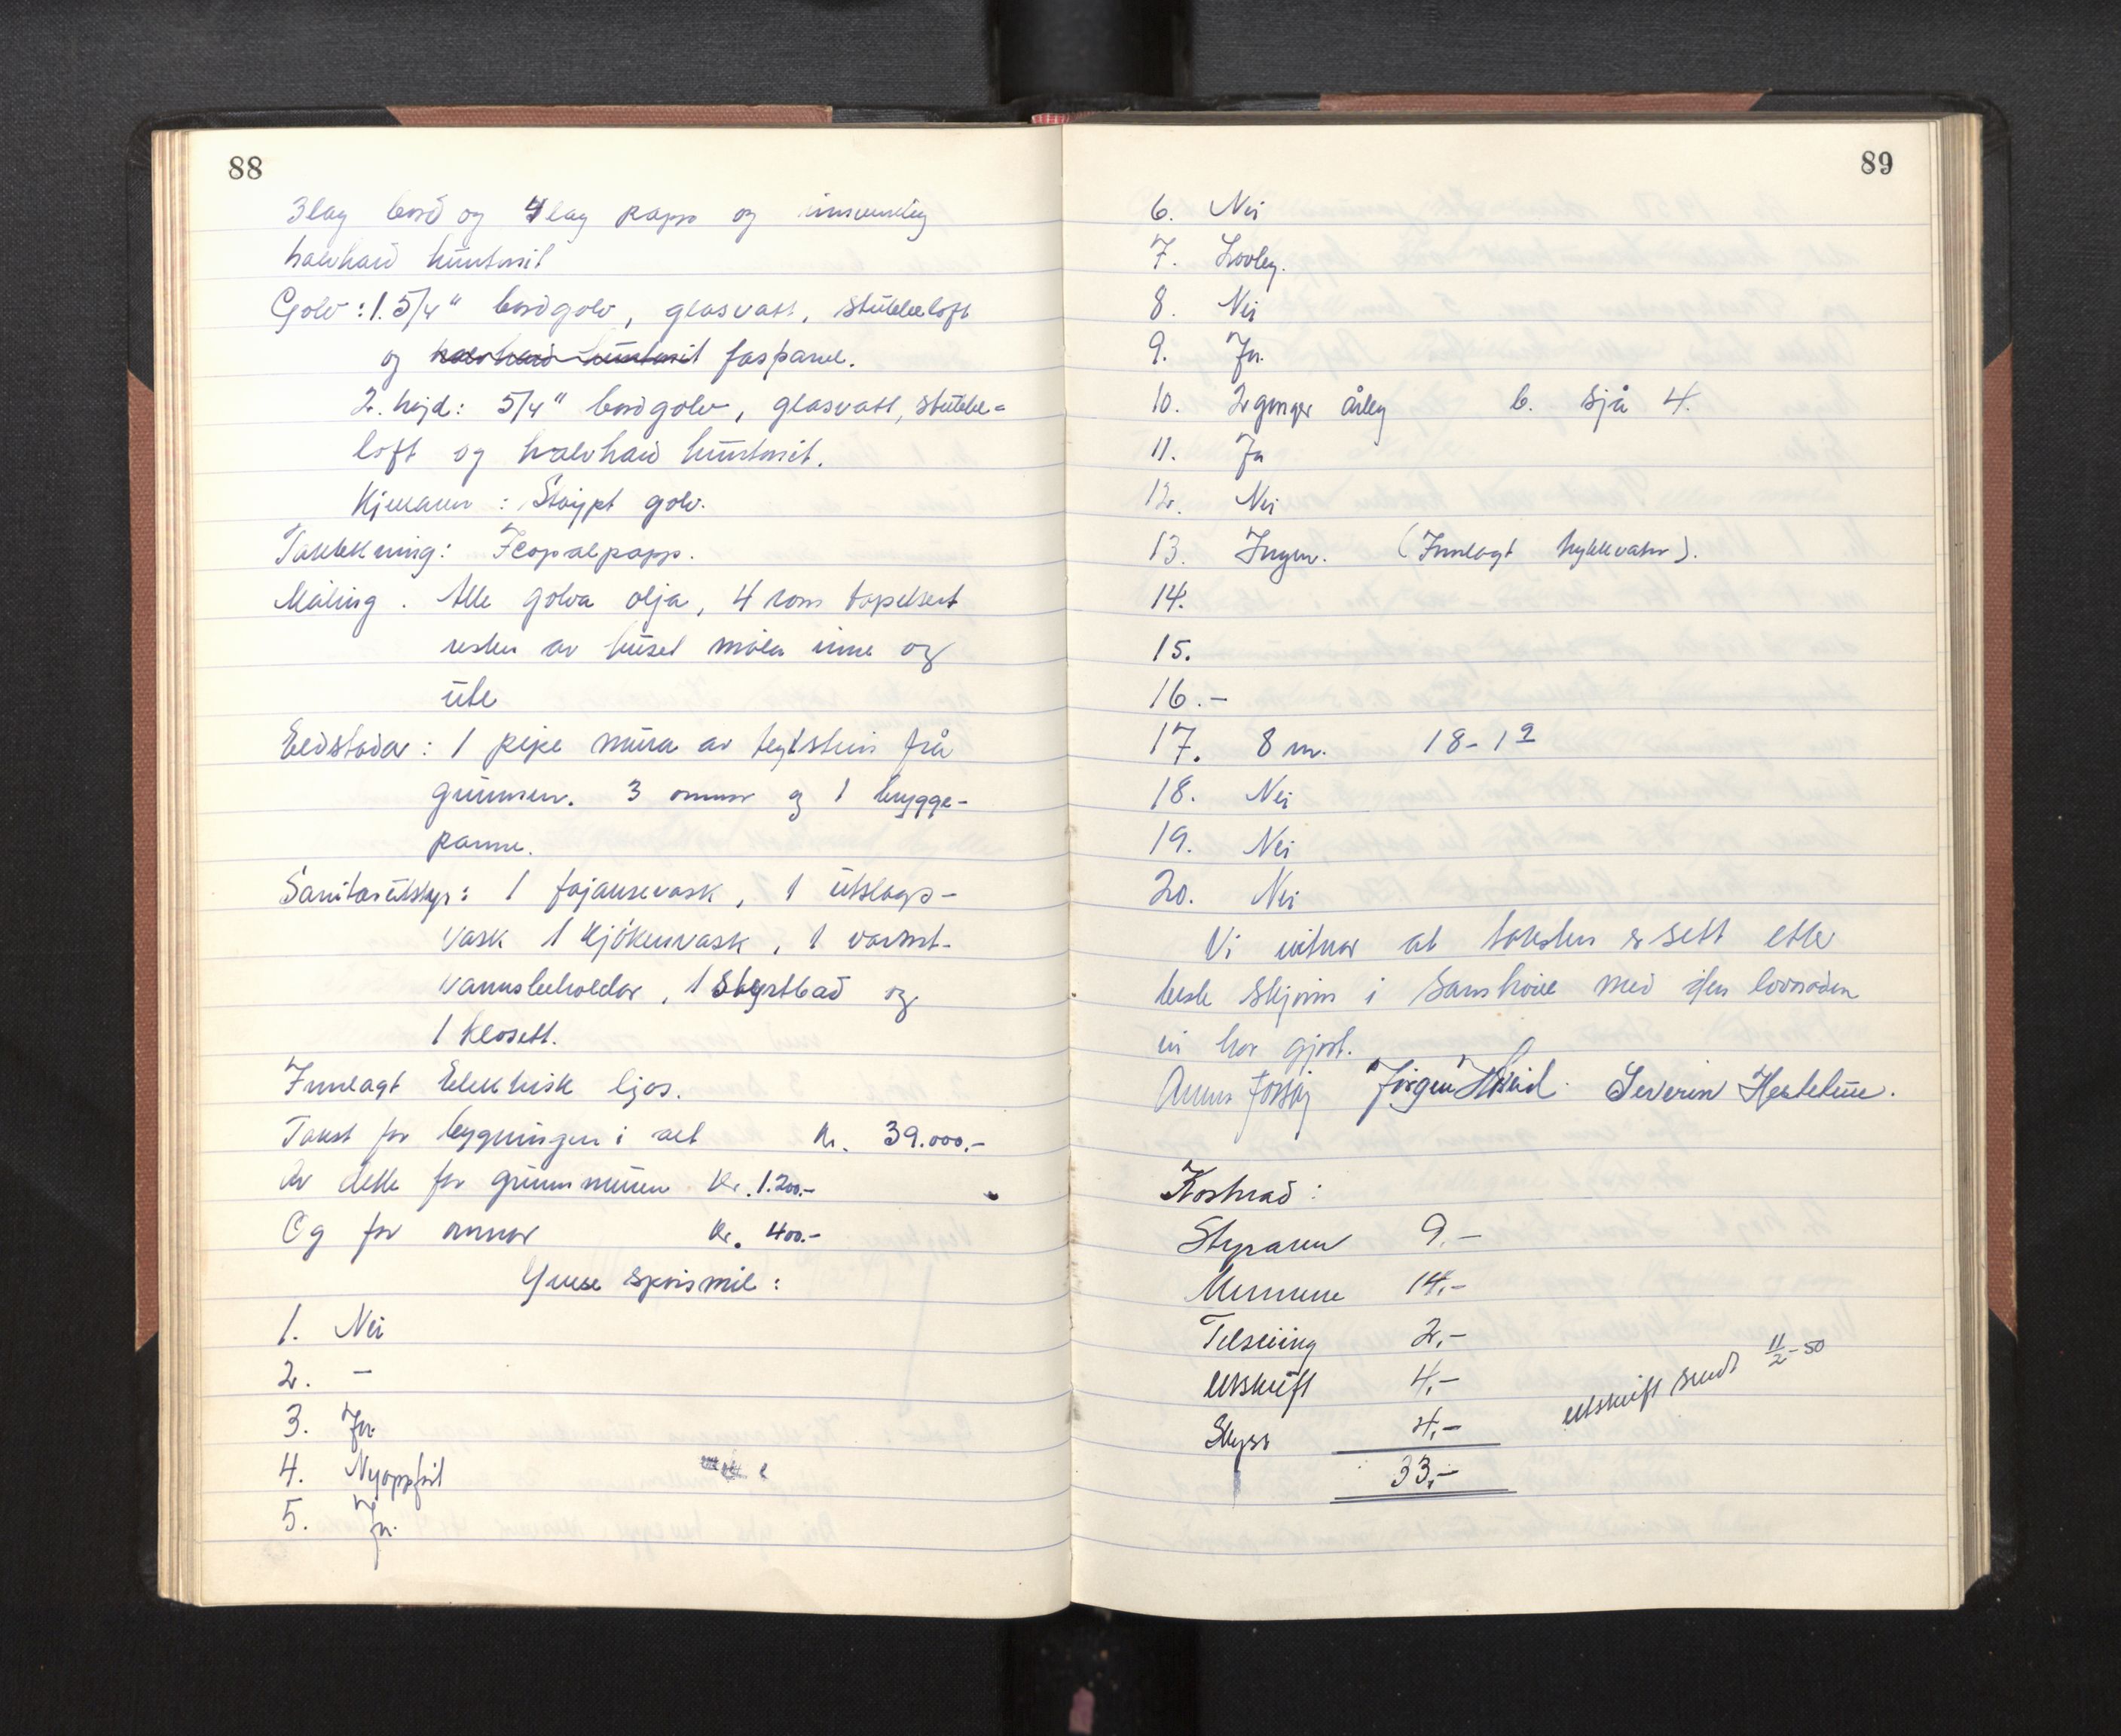 88
3 lag bord og 4 lag papp og innvendig
halvhard huntonit
Golv: 1. 5/4" bordgolv, glasvatt, stubbeloft
og halvhard huntonit faspanel.
2. högd: 5/4" bordgolv, glasvatt, stubbe=
loft og halvhard huntonit.
Kjellaren: Stöypt golv.
Taktekning: Icopalpapp.
Måling. Alle golva olja, 4 rom tapetsert
resten av huset måla inne og
ute
Eldstadar: 1 pipe mura av teglstein frå
grunnen. 3 omnar og 1 brygge-
panne.
Sanitærutstyr: 1 fajansevask, 1 utslags-
vask 1 kjökenvask, 1 varmt-
vannsbeholdar, 1 styrtbad og
1 klosett.
Innlagt Elektrisk ljos.
Takst for bygningen i alt Kr. 39.000.-
Av dette for grunnmuren Kr. 1.200.-
Og for omnar Kr. 400.-
Ymse spörsmål:
1. Nei
2. -
3. Ja.
4. Nyoppfört
5. Ja.
89
6. Nei
7. Lovleg.
8. Nei
9. Ja.
10. 2 gonger årleg b. sjå 4.
11. Ja
12. Nei
13. Ingen. (Innlagt trykkvatn).
14.
15.
16. -
17. 8 m. 18-19
18. Nei
19. Nei
20. Nei
Vi vitnar at taksten er sett etter
beste skjönn i samhöve med den lovnaden
vi har gjort.
Jörgen Severin Hestetun.
Kostnad:
Styraren 9.-
Mennene 14.-
Tilseiing 2.-
Utskrift 4.-
Skyss 4.-
33.-
Utskrift sendt 11/2-50